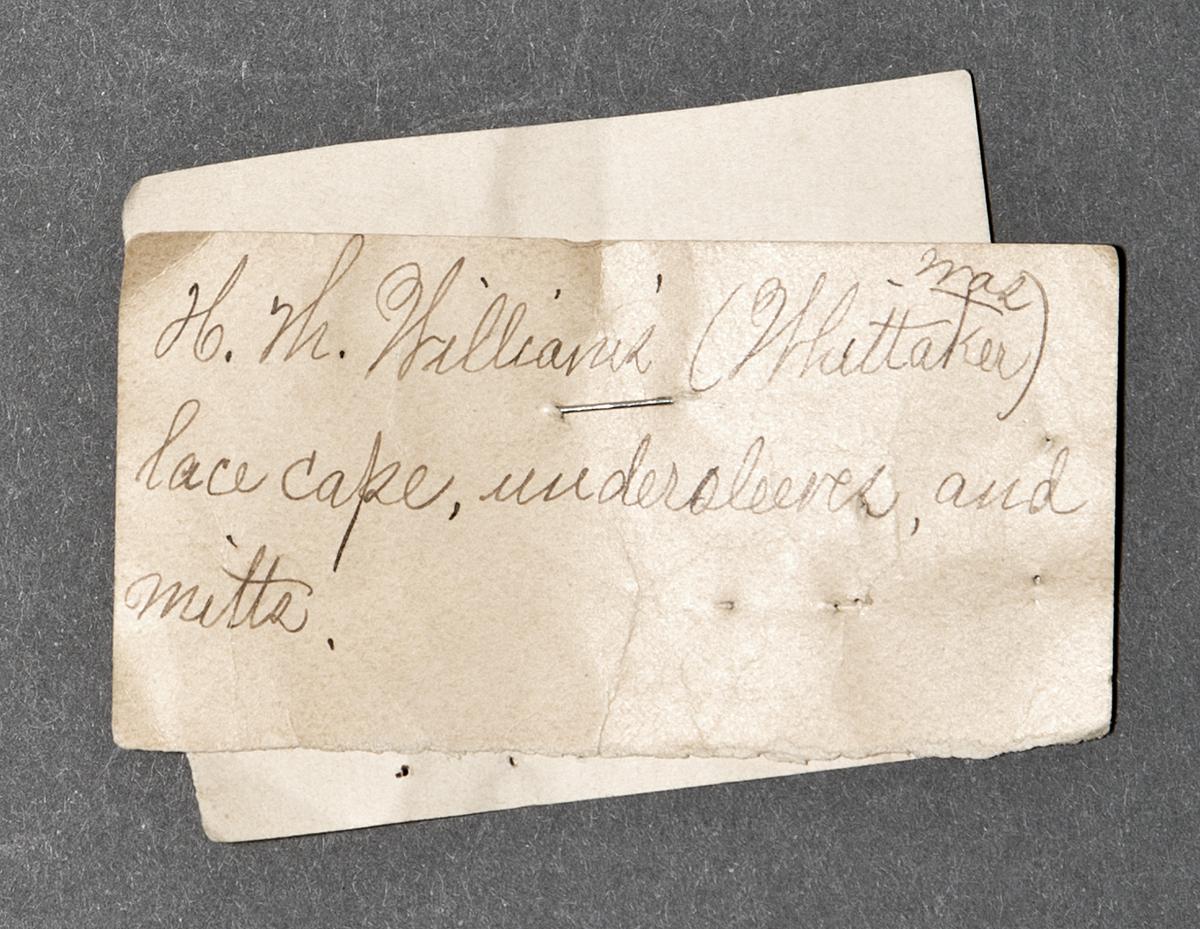 H. M. Williams' (Whittaker) was
lace cape, undersleeves, and
mitts.